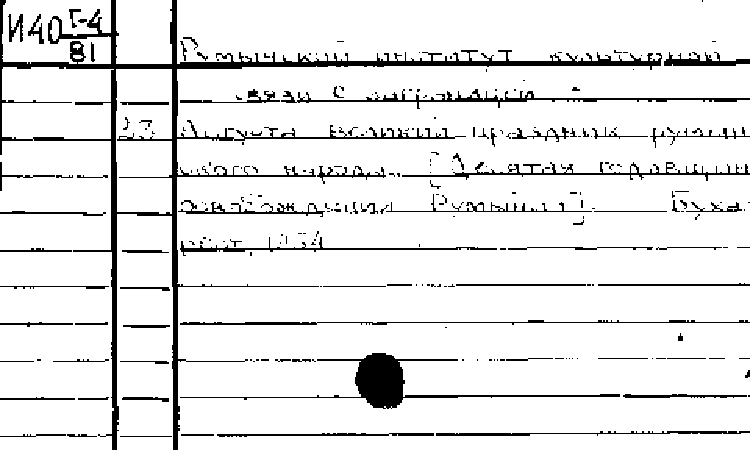 И40 Г-4/81
Румынский институт культурной
связи с заграницей.
23 Августа великий праздник румын
ского народа. [Десятая годовщин
освобождения Румынии]. Буха
рест, 1954